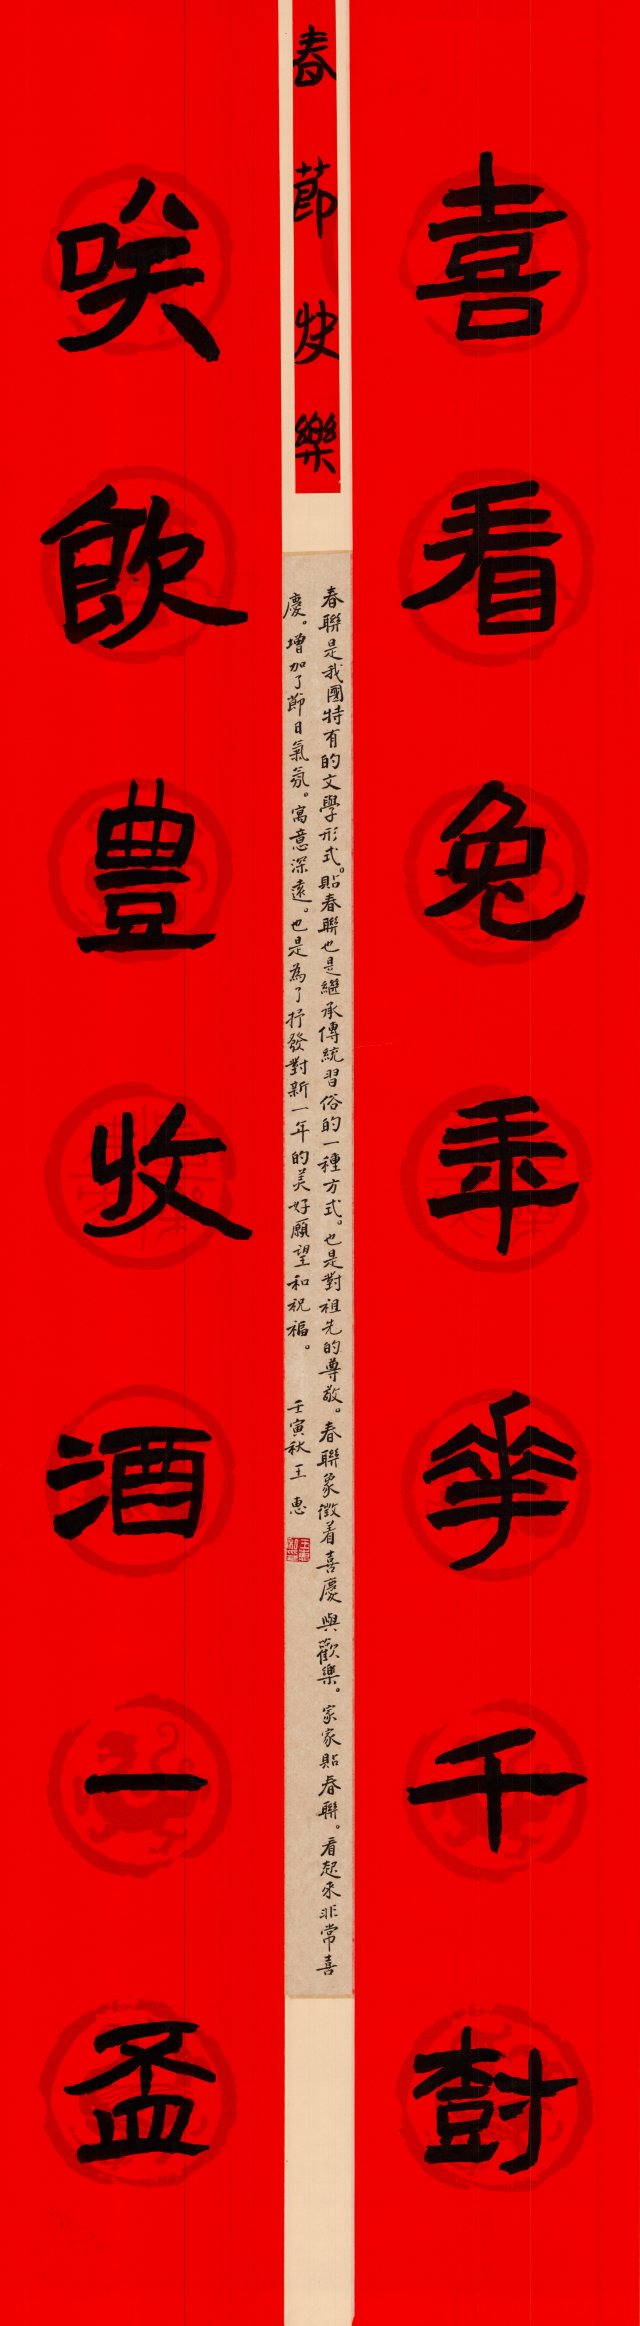 喜看兔年華千樹
咲飲豊收酒一盃
春節快樂
春聯是我國特有的文學形式。貼春聯也是繼承傳統習俗的一種方式。也是對祖先的尊敬。春聯象徵着喜慶與歡樂。家家貼春聯。看起來非常喜
慶。增加了節日氣氛。寓意深遠。也是為了抒發對新一年的美好願望和祝福。 壬寅秋王惠